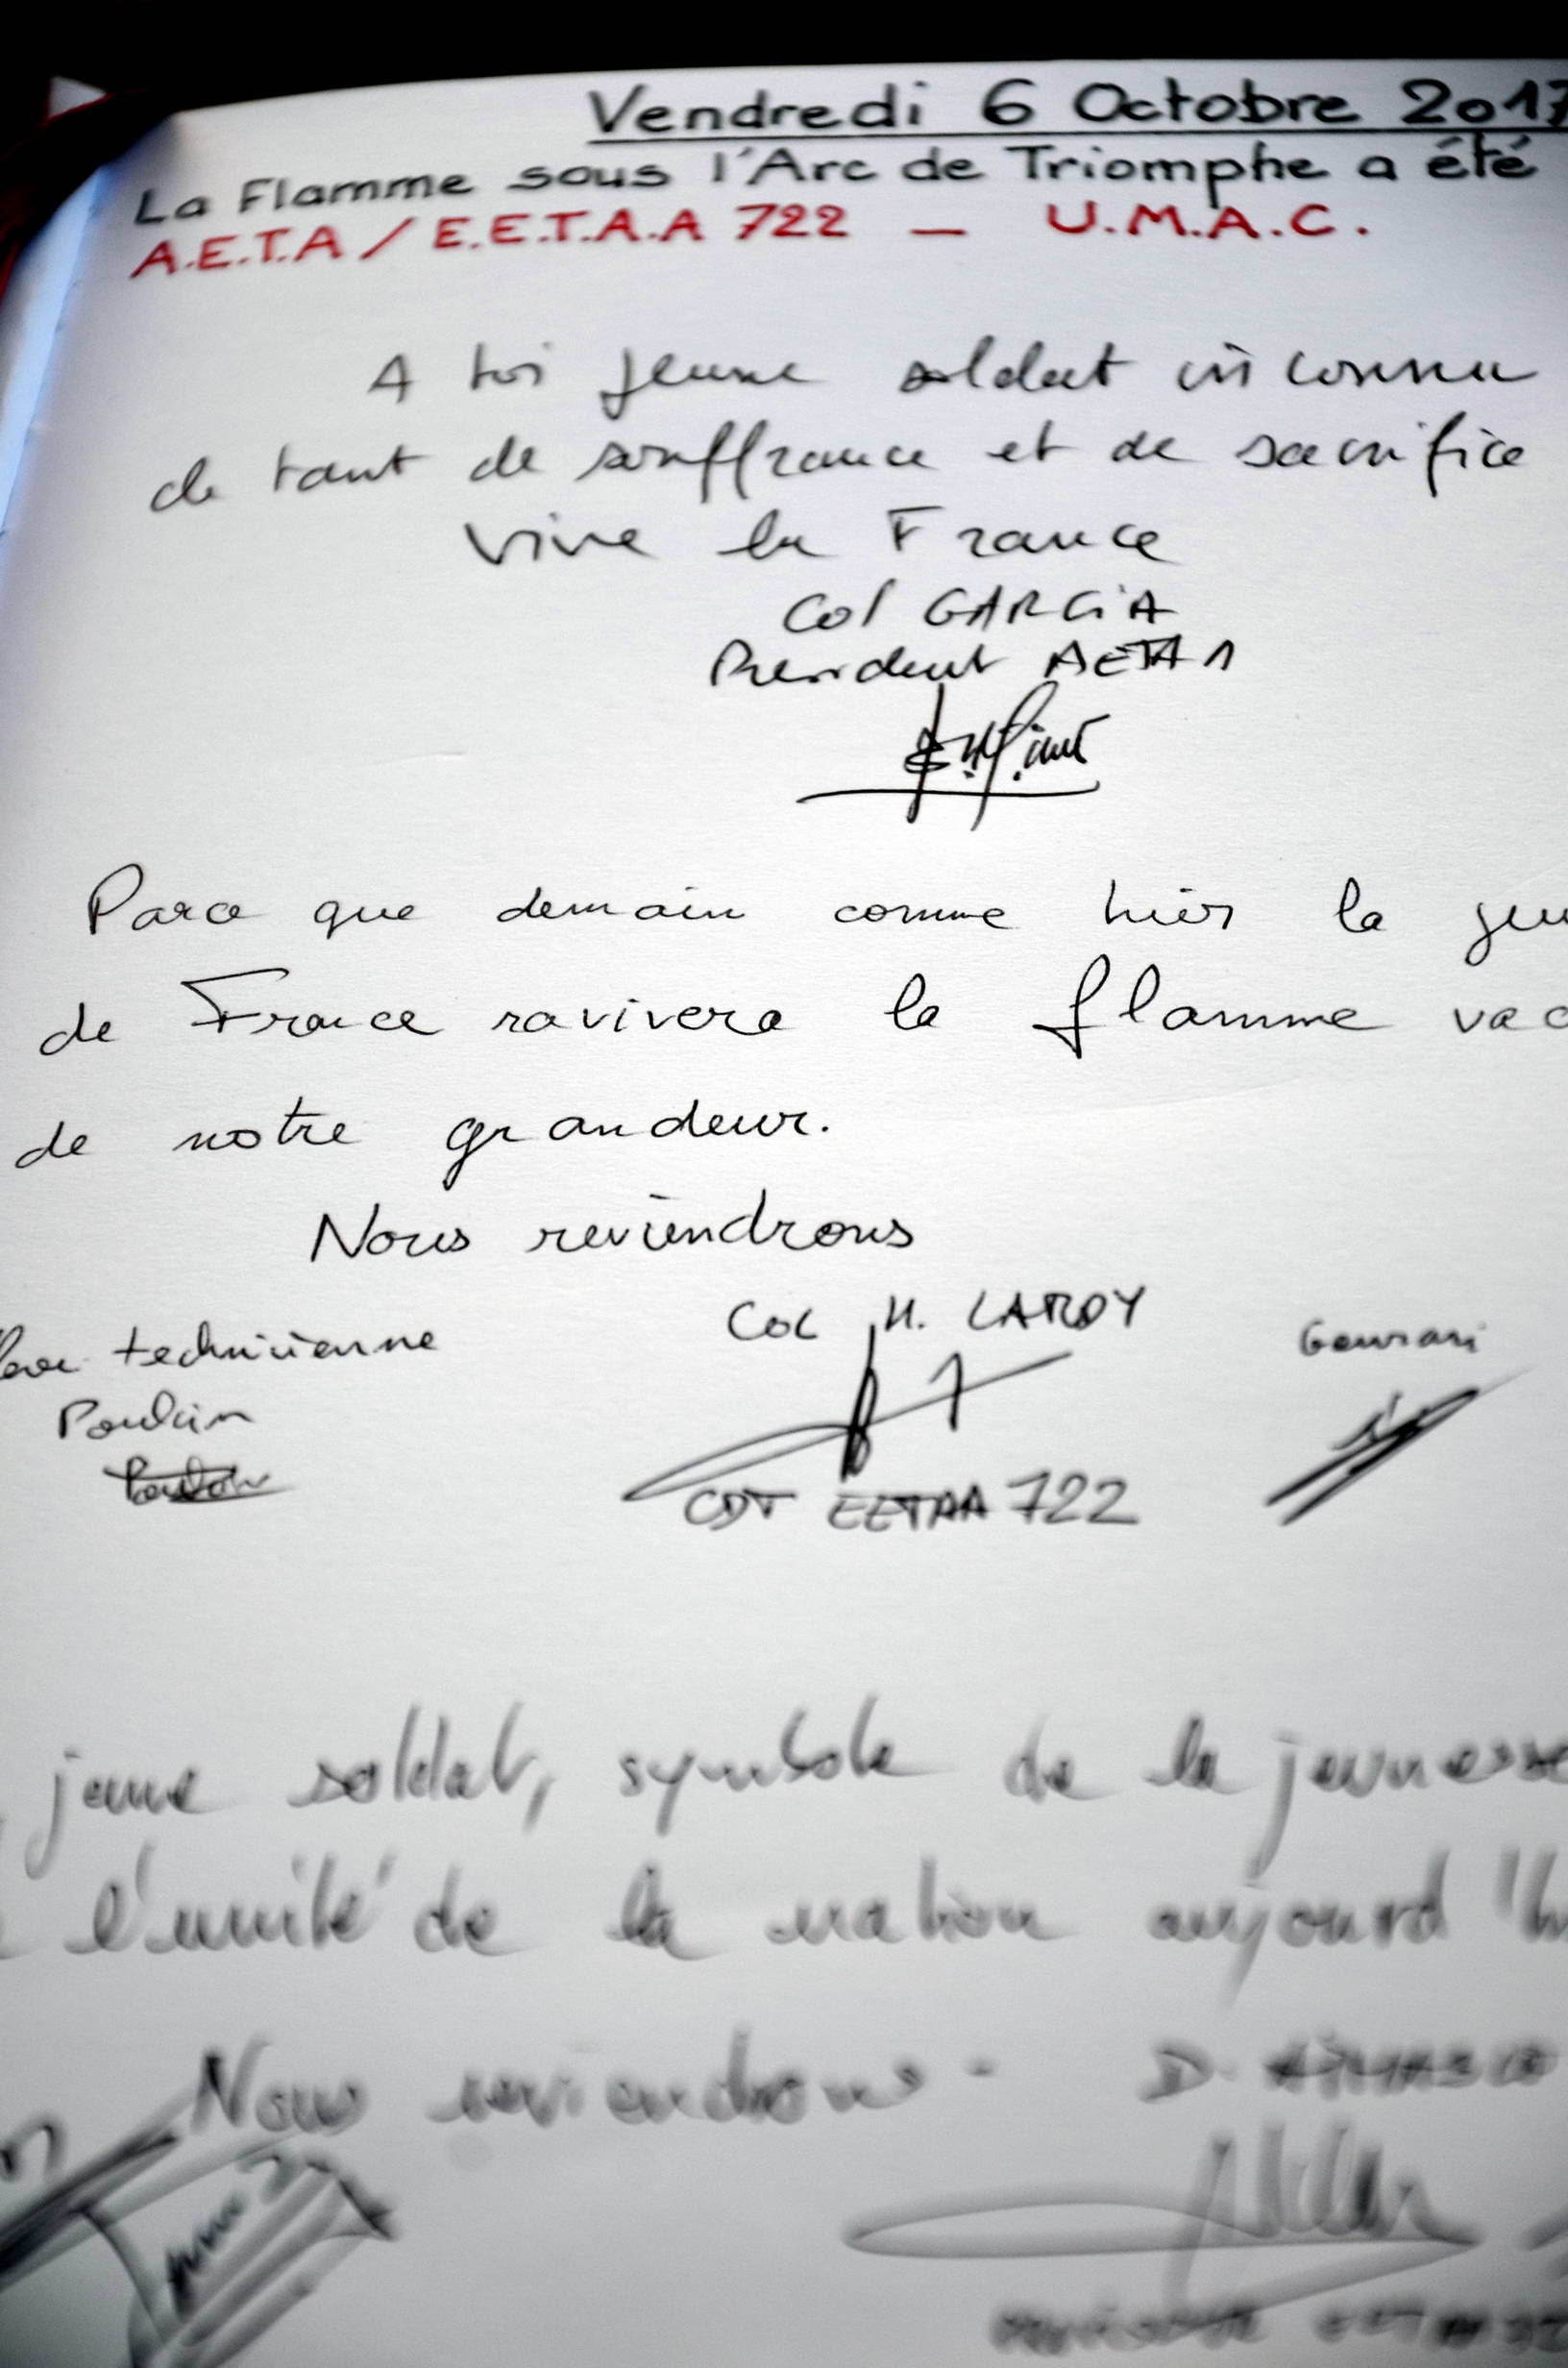 Vendredi 6 Octobre 2017
La Flamme sous l'Arc de Triomphe a été
A.E.T.A / E.E.T.A.A 722 — U.M.A.C.
A toi jeune soldat inconnu
de tant de souffrance et de sacrifice
Vive la France
Col GARCIA
President AETA
Parce que demain comme hier la jeu
de France ravivera la flamme vac
de notre grandeur.
Nous reviendrons
technicienne
Poulain
Col H. LAROY
CDT EETAA 722
jeune soldat, symbole de la jeunesse
l'unité de la nation aujourd'hu
Nous reviendrons.
D.